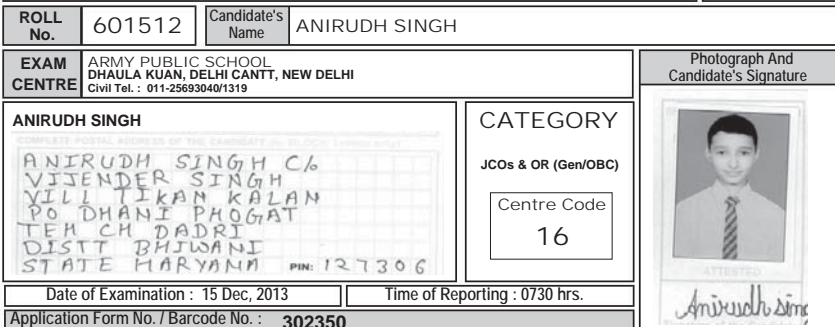 ROLL No. 601512 Candidate's Name ANIRUDH SINGH
EXAM CENTRE
ARMY PUBLIC SCHOOL
DHAULA KUAN, DELHI CANTT, NEW DELHI
Civil Tel. : 011-25693040/1319
Photograph And
Candidate's Signature
ANIRUDH SINGH
COMPLETE POSTAL ADDRESS OF THE CANDIDATE
ANIRUDH SINGH C/o
VIJENDER SINGH
VILL TIKAN KALAN
PO DHANI PHOGAT
TEH CH DADRI
DISTT BHIWANI
STATE HARYANA PIN: 127306
CATEGORY
JCOs & OR (Gen/OBC)
Centre Code
16
ATTESTED
Anirudh sing
Date of Examination : 15 Dec, 2013
Time of Reporting : 0730 hrs.
Application Form No. / Barcode No. : 302350